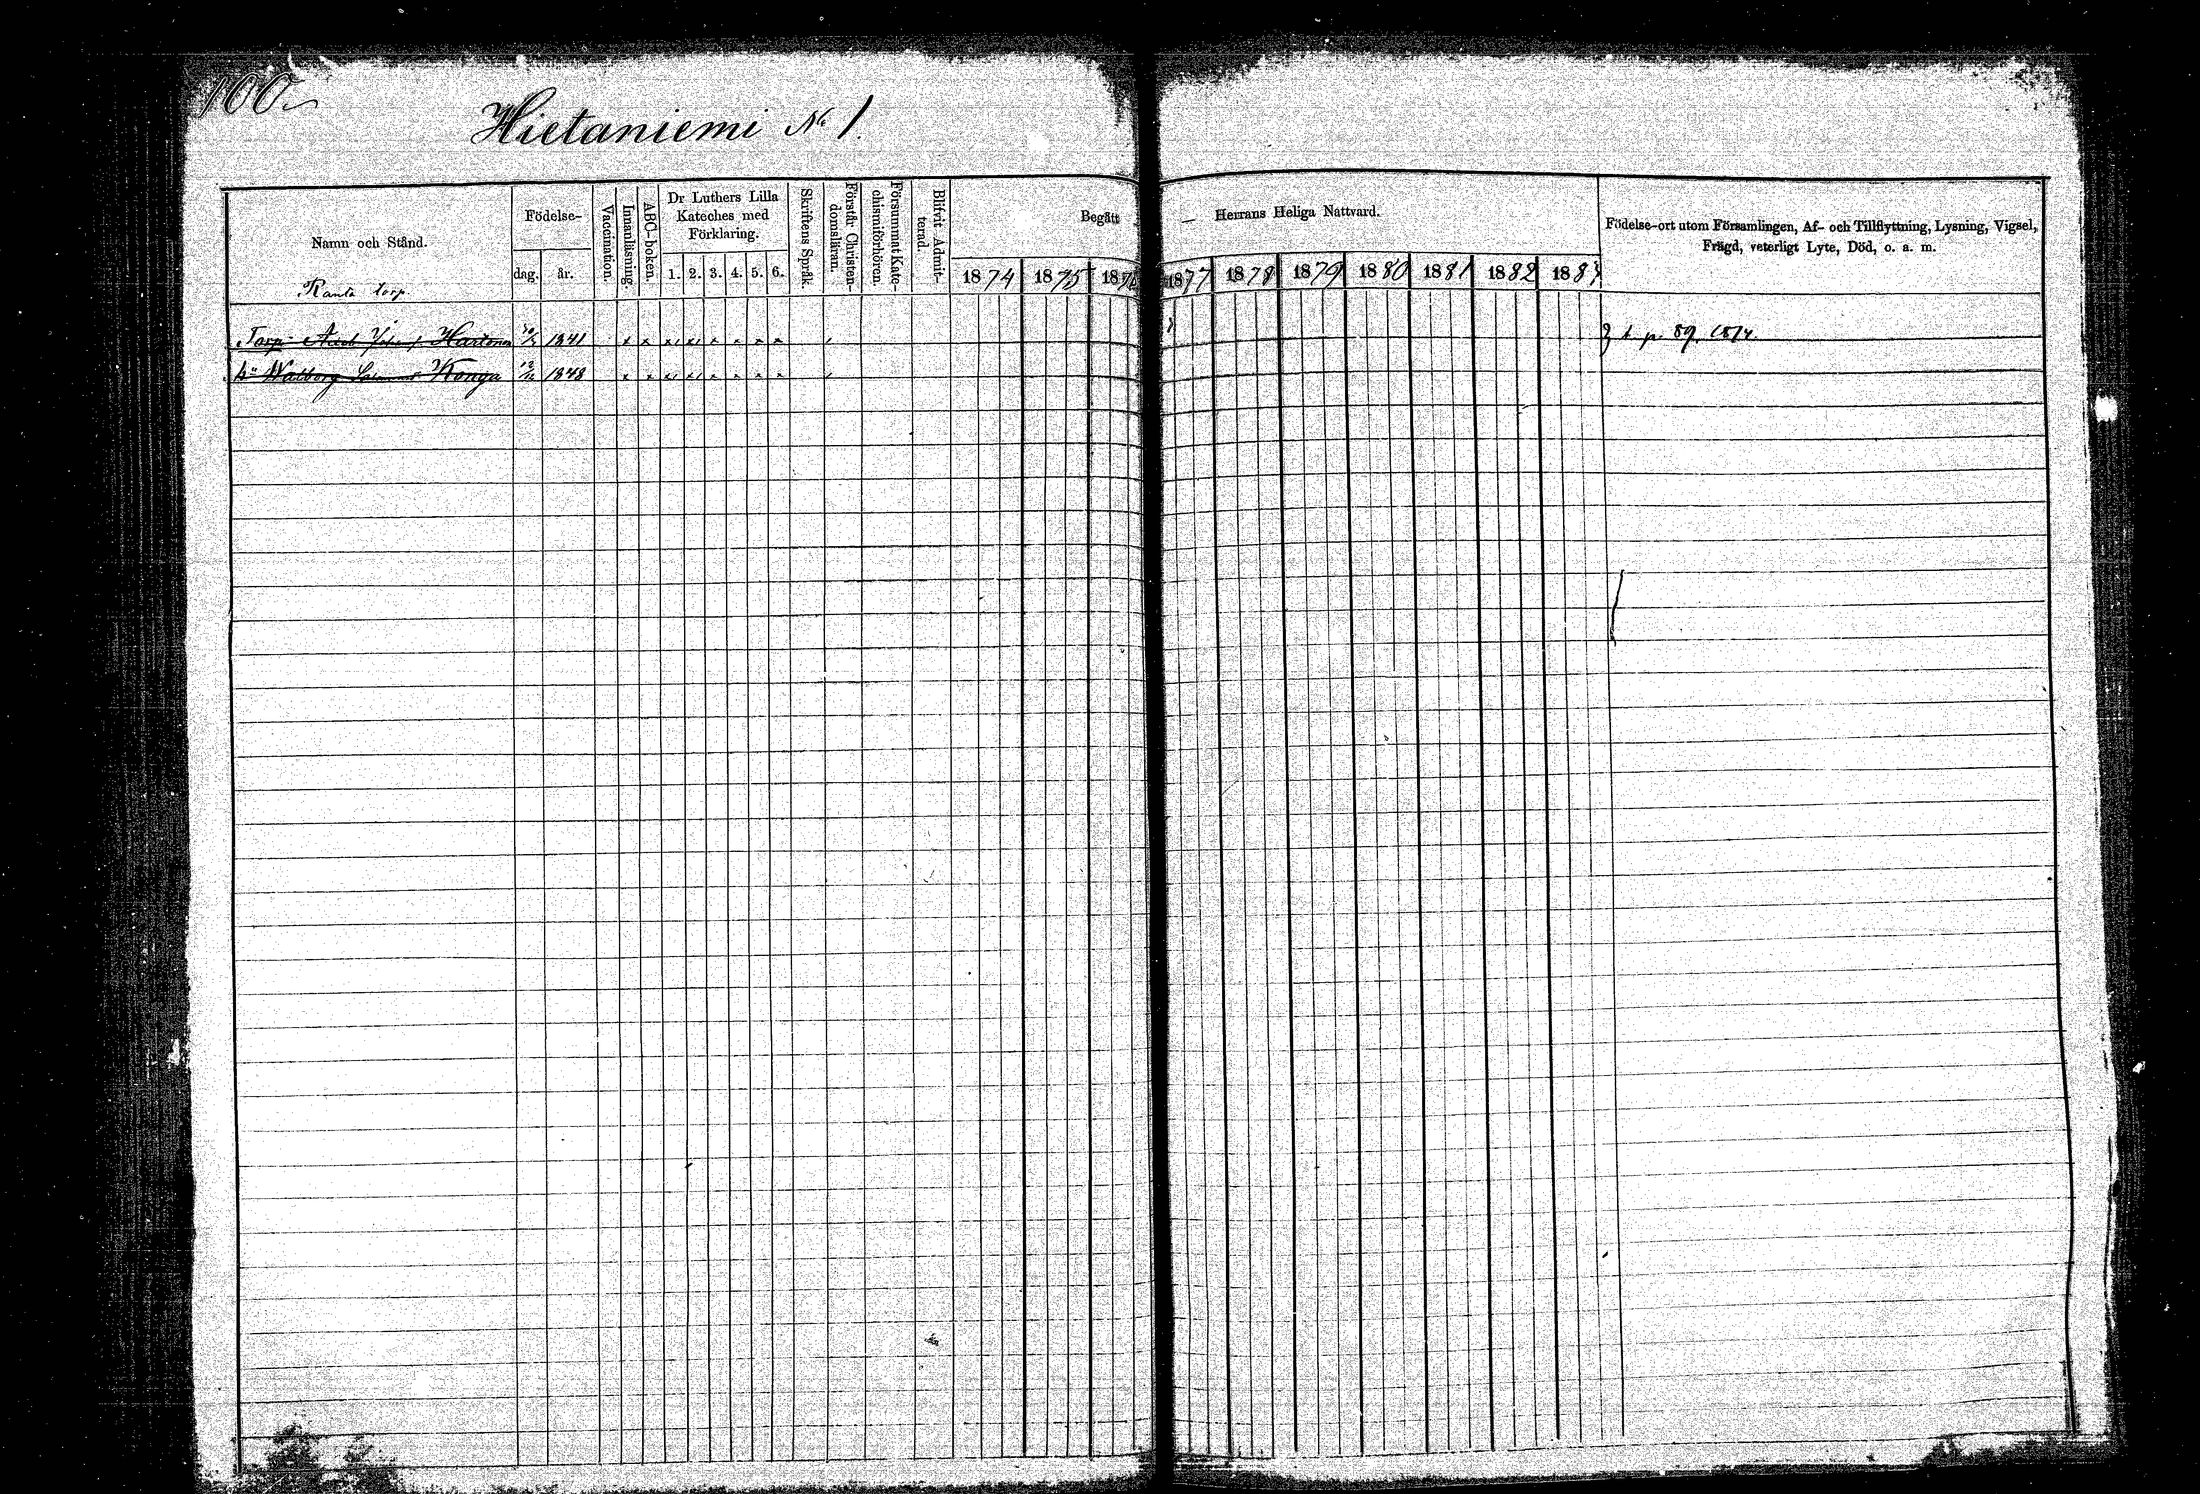 100
Hietaniemi No 1.
Namn och Stånd.
Födelse-
dag. år.
Vaccination.
Innanläsning.
ABC-boken.
Dr Luthers Lilla
Kateches med
Förklaring.
1. 2. 3. 4. 5. 6.
Skriftens Språk.
Förstår Christen-
domsläran.
Försummat Kate-
chismiförhören.
Blifvit Admit-
terad.
Begått — Herrans Heliga Nattvard.
1874 1875 1876 1877 1878 1879 1880 1881 1882 1883
Födelse-ort utom Församlingen, Af- och Tillflyttning, Lysning, Vigsel,
Frägd, veterligt Lyte, Död, o. a. m.
Ranta torp.
Torp. Jacob Hartonen 1841 x x x x x x x x p. 89. 1874.
Walborg Konga 1848 x x x x x x x x